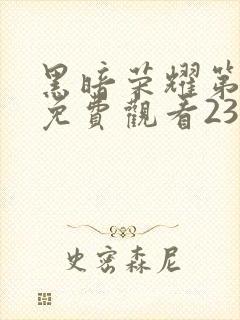 黑暗荣耀第
免費觀看23
史密森尼